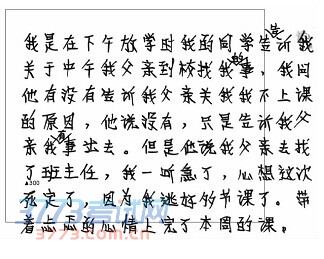 我是在下午放学时我的同学告诉我
关于中午我父亲到校找我的事，我问
他有没有告诉我父亲关我我不上课
的原因，他说没有，只是告诉我父
亲我有事出去。但是他说我父亲去找
了班主任，我一听急了，心想这次
▲300
死定了，因为我逃好多节课了。带
3773考试网
着忐忑的心情上完了本周的课。